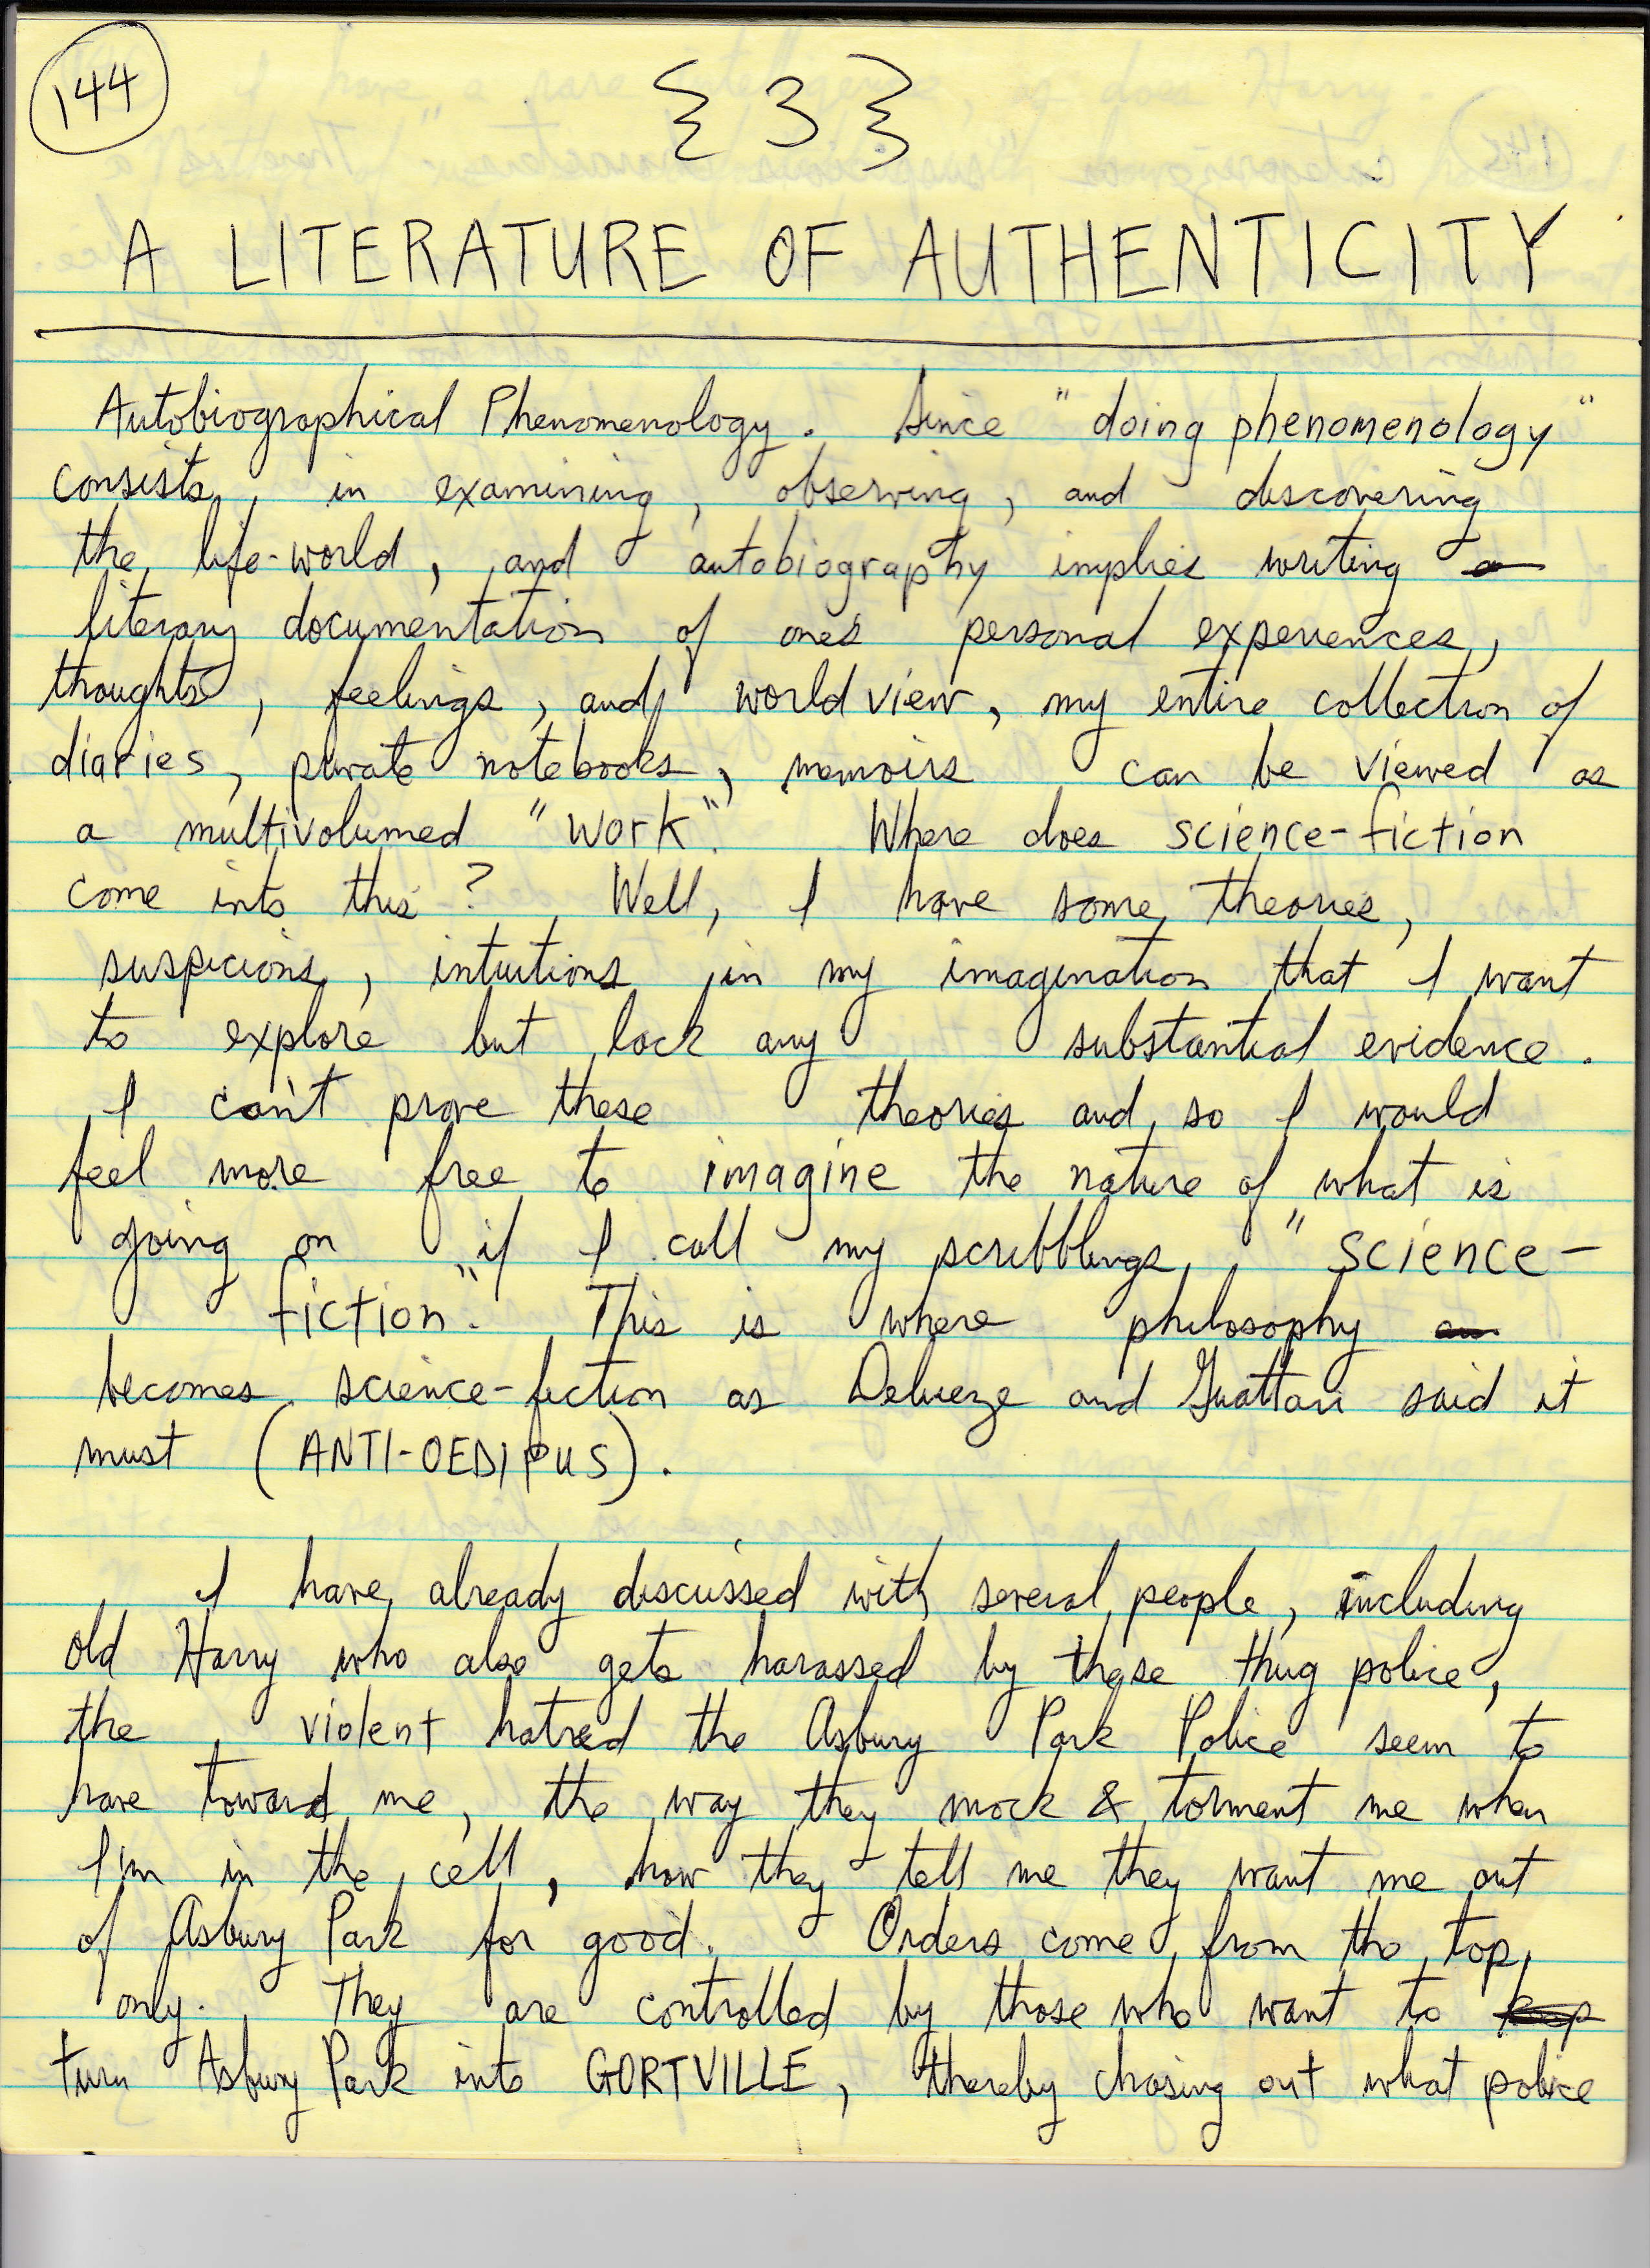 144
{ 3 }
A LITERATURE OF AUTHENTICITY
Autobiographical Phenomenology. Since "doing phenomenology"
consists, in examining, observing, and discovering
the life-world, and autobiography implies writing a
literary documentation of one's personal experiences,
thoughts, feelings, and world view, my entire collection of
diaries, private notebooks, memoirs can be viewed as
a multivolumed "work". Where does science-fiction
come into this? Well, I have some theories,
suspicions, intuitions in my imagination that I want
to explore but lack any substantial evidence.
I can't prove these theories and so I would
feel more free to imagine the nature of what is
going on if I call my scribblings, "science-
fiction". This is where philosophy
becomes science-fiction as Delueze and Guattari said it
must (ANTI-OEDIPUS).
I have already discussed with several people, including
old Harry who also gets harassed by these thug police,
the violent hatred the Asbury Park Police seem to
have toward me, the way they mock & torment me when
I'm in the cell, how they tell me they want me out
of Asbury Park for good. Orders come from the top,
only. They are controlled by those who want to keep
turn Asbury Park into GORTVILLE, thereby chasing out what police